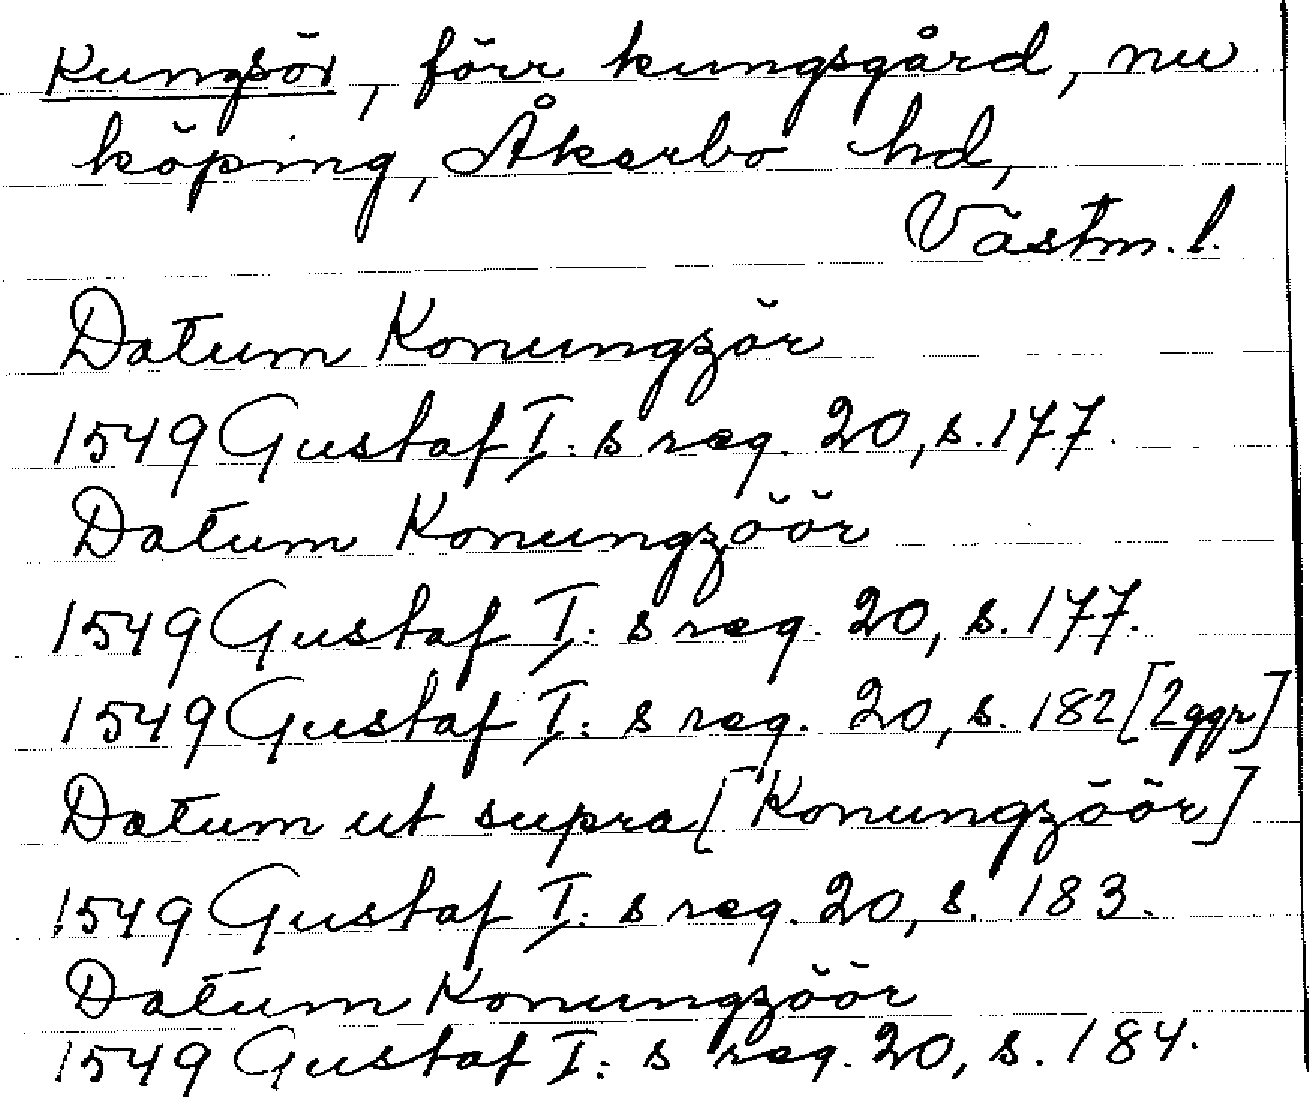 Kungsör, förr kungsgård, nu
köping, Åkerbo hd,
Västm. l.
Datum Konungzör
1549 Gustaf I:s reg. 20, s. 177.
Datum Konungzöör
1549 Gustaf I:s reg. 20, s. 177.
1549 Gustaf I:s reg. 20, s. 182 [2 ggr]
Datum ut supra [Konungzöör]
1549 Gustaf I:s reg. 20, s. 183.
Datum Konungzöör
1549 Gustaf I:s reg. 20, s. 184.